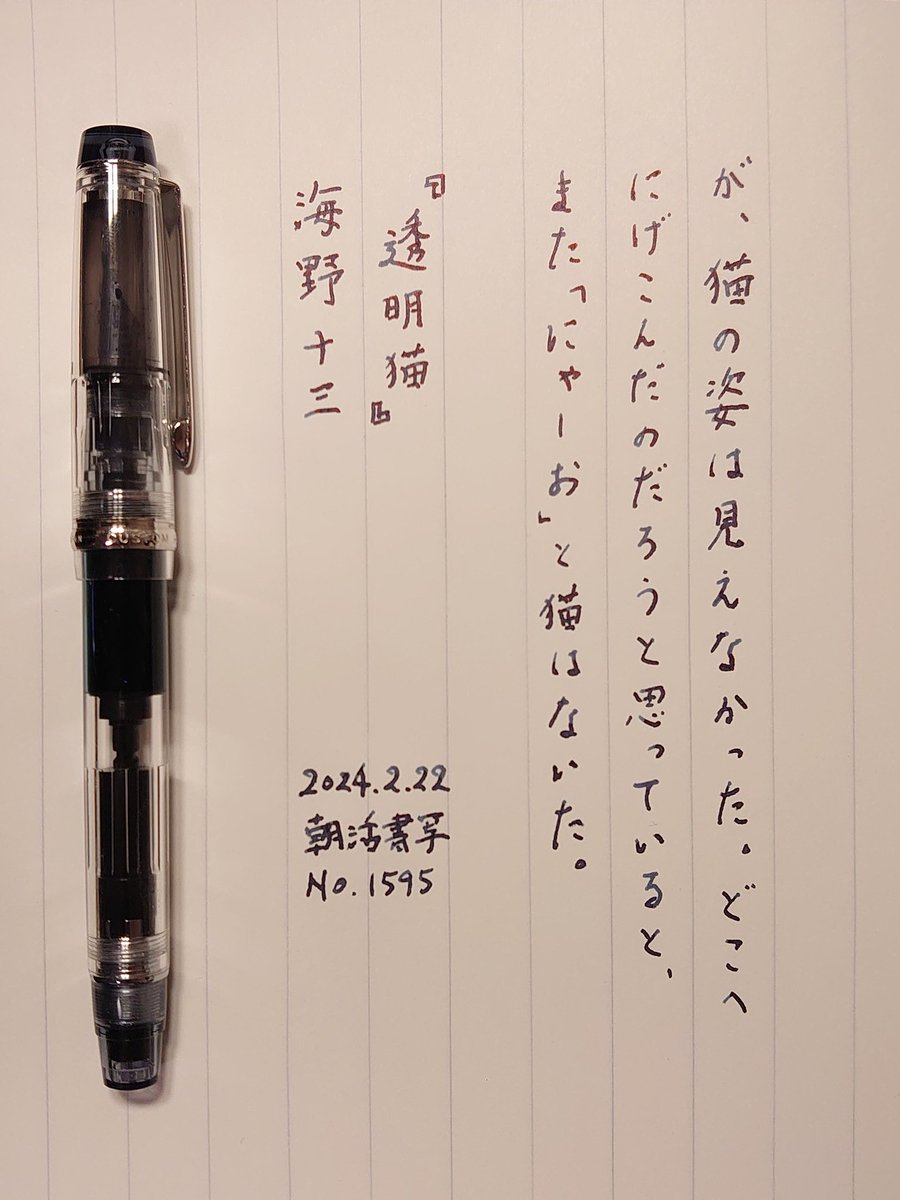 が、猫の姿は見えなかった。どこへ
にげこんだのだろうと思っていると、
また「にゃーお」と猫はないた。
『透明猫』
海野十三
2024.2.22
朝活書写
No.1595
CUSTOM